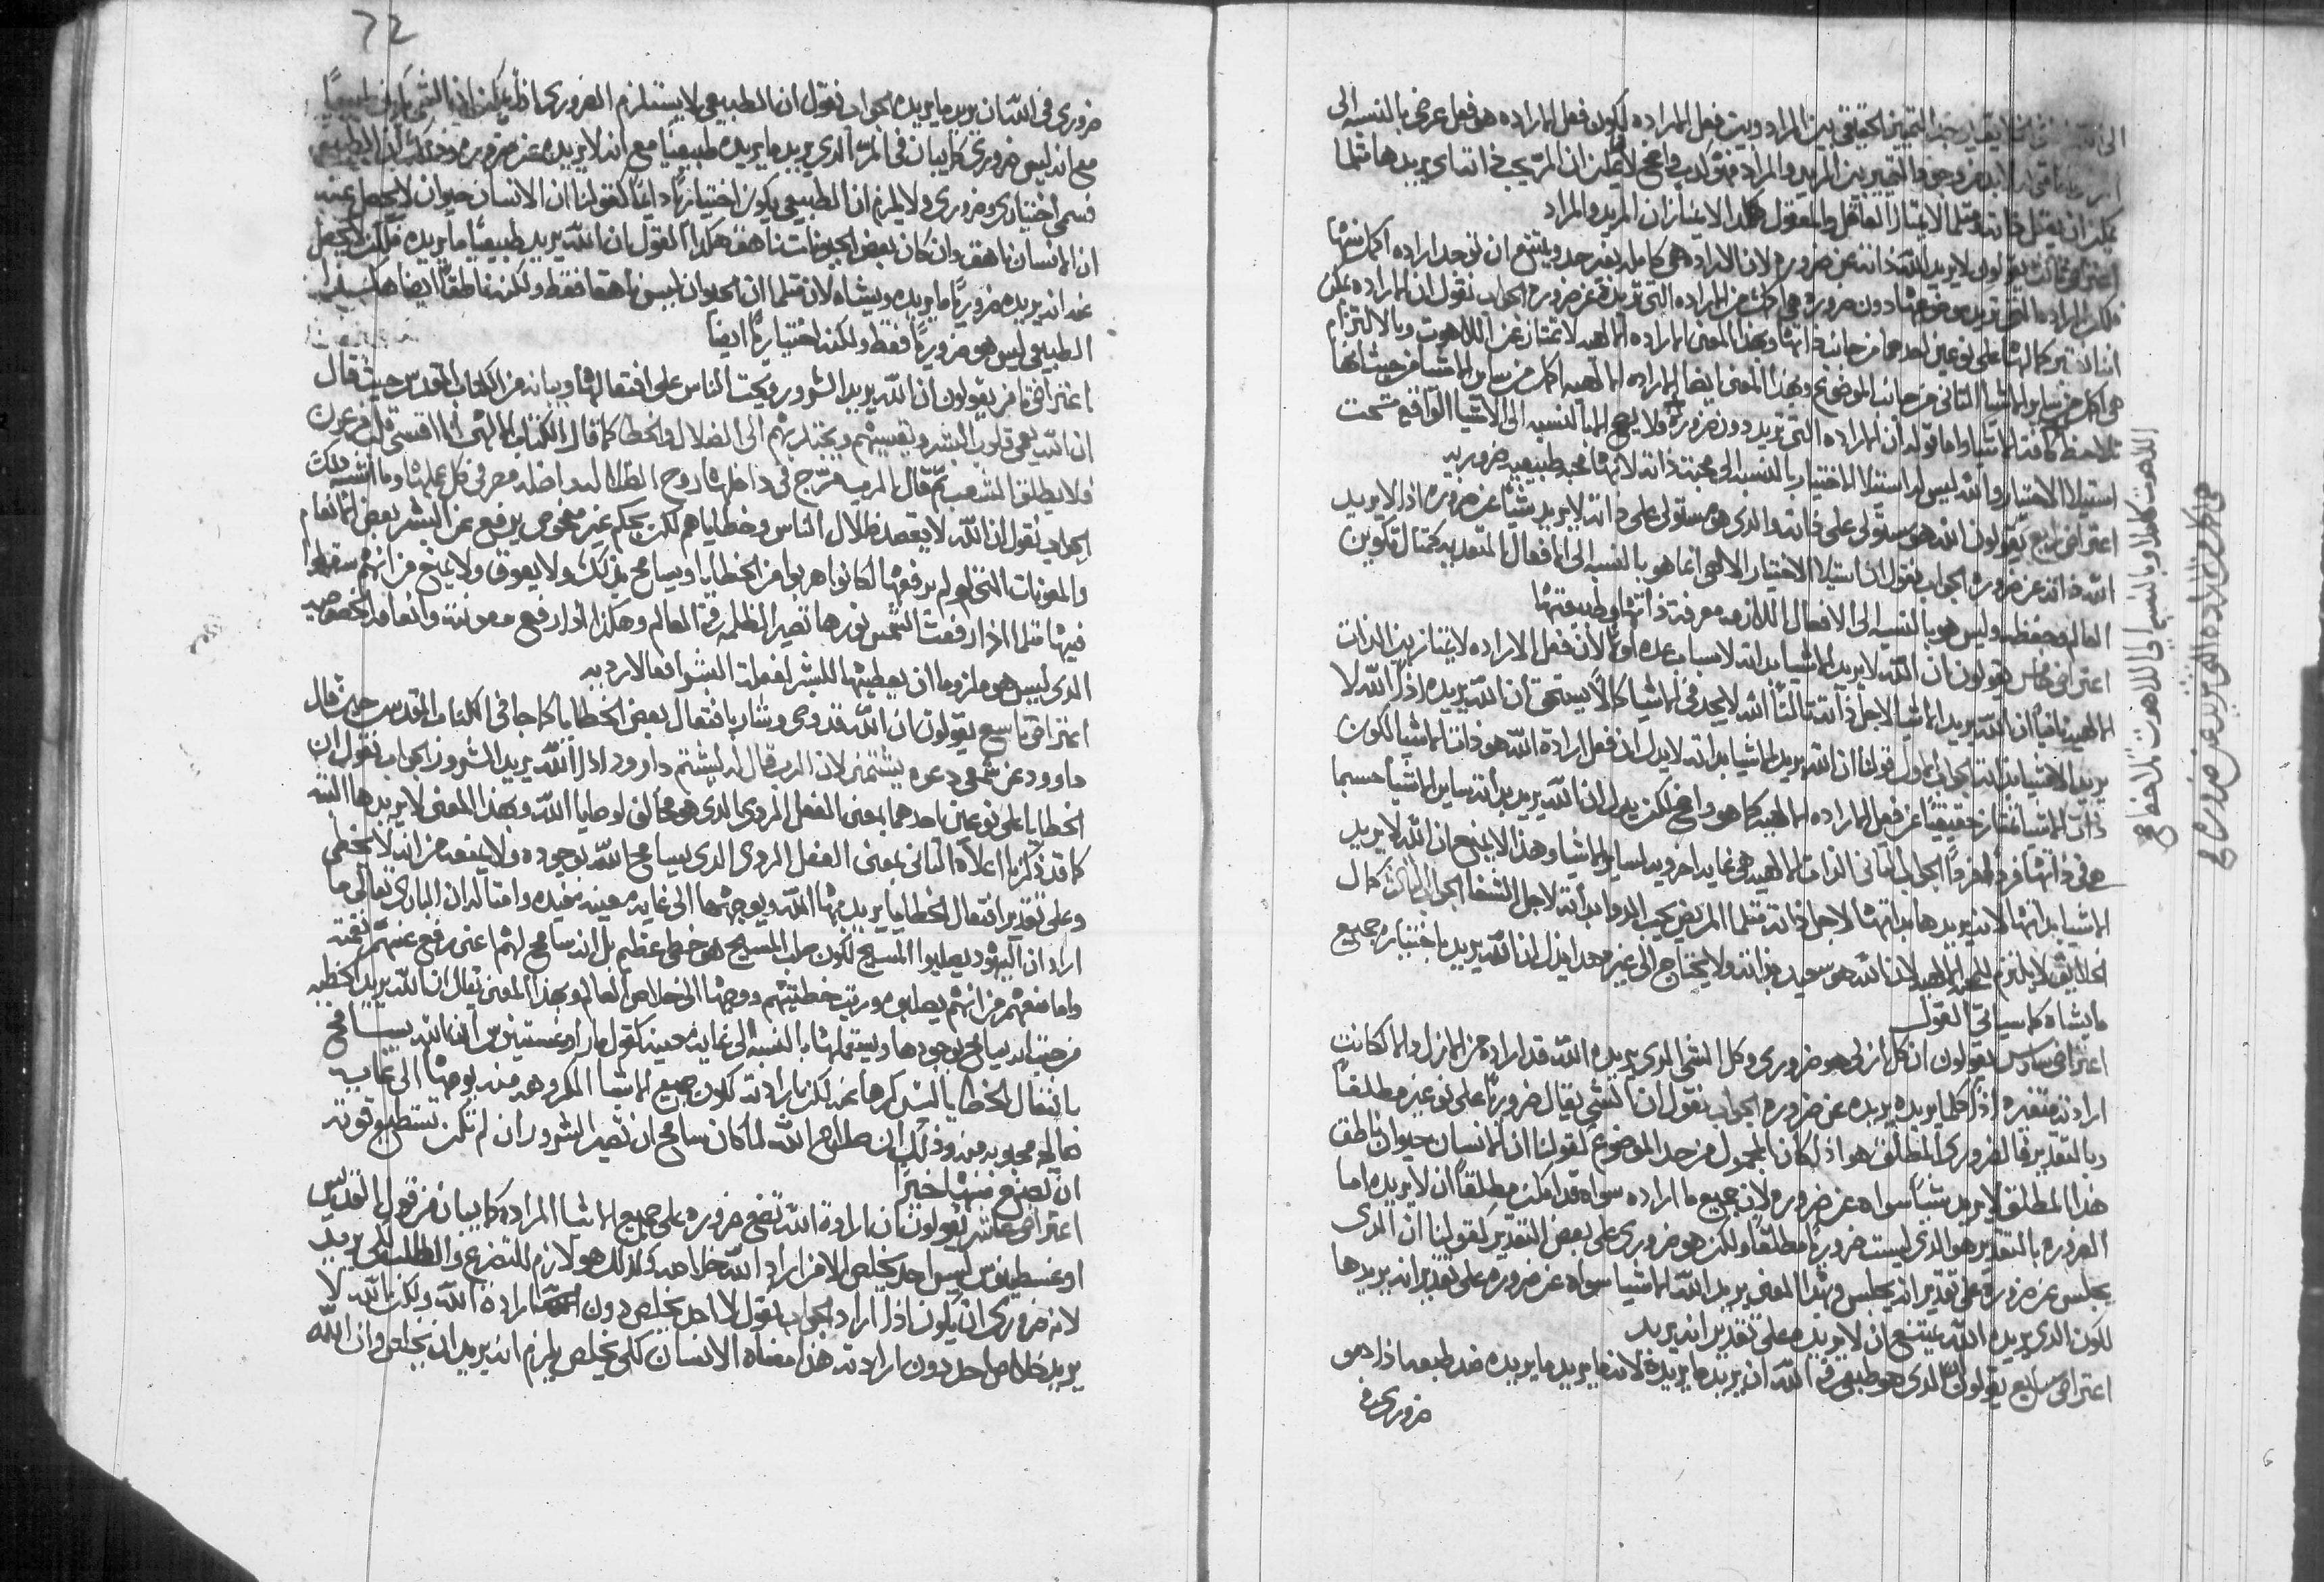 بين المراد وبين فعل الاراده لكون فعل الاراده هو فعل عرضي بالنسبه الى
بين المريد والمراد فهو كدب واضح
يمكن ان يعقل ذاته ومثلما لا يمتاز العاقل والمعقول هكدا لا يمتازان المريد والمراد
اعتراض ثالث يقولون لا يريد الله ذاته عن ضروره لان الاراده هي كامله بغير حد ويمتنع ان توجد اراده اكمل منها
فلكن الاراده التي تريد موضوعها دون ضروره هي اكمل من الاراده التي تريده عن ضروره الجواب نقول ان الاراده يمكن
على نوعين احدهما من جانب ذاتها وبهذا المعنى الاراده الالهيه لا تمتاز عن اللاهوت وبالالتزام
هي اكمل من ساير الاشيا الثاني من جانب الموضوع وبهذا المعنى ايضا الاراده الالهيه اكمل من ساير الاشيا من حيث انها
تلاحظ كافة الاشيا واما قوله ان الاراده التي تريد دون ضروره ولا يصح الا بالنسبه الى الاشيا الواقع تحت
استيلا الاختيار والله ليس له استيلا الاختيار بالنسبه الى محبة ذاته لانها محبه طبيعيه ضروريه
اعتراض رابع يقولون الله هو مستولي على ذاته والدي هو مستولي على ذاته لا يريد شيا عن ضروره اذا لا يريد
الله ذاته عن ضروره الجواب نقول ان استيلا الاختيار الالهي انما هو بالنسبه الى الافعال المتعديه كمثال تكوين
العالم وحفظه وليس هو بالنسبه الى الافعال اللازمه معرفة ذاتها وطبيعتها
اعتراض خامس يقولون ان الله لا يريد الاشيا بداته لاسباب عده اولا لان فعل الاراده لا يمتاز بين الدات
الالهيه ثانيا ان الله يريد الاشيا لاجل ذاته ثالثا الله لا يجد في الاشيا كمالا يستحق ان الله يريده اذا الله لا
يريد الاشيا بداته الجواب الاول قولنا ان الله يريد الاشيا بداته لا يدل ان فعل ارادة الله هو ذات الاشيا لكون
ذات الاشيا تمتاز حقيقيا عن فعل الاراده الالهيه كما هو واضح لكن يدل ان الله يريد بداته ساير الاشيا حسبما
هي في ذاتها الجواب الثاني الذات الالهيه هي غايه اخرويه لساير الاشيا وهذا لا يمنع ان الله لا يريد
الاشيا بداتها لانه يريدها بداتها لاجل ذاته مثلما المريض يحب الدوا بداته لاجل الشفا الجواب الثالث كمال
الخلايق لا يلتزم الله هو سعيد بذاته ولا يحتاج الى غيره ان الله يريد باختياره جميع
ما يشاه كما سياتي القول
اعتراض سادس يقولون ان كل ازلي هو ضروري وكل الشي الدي يريده الله قد اراده من الازل والا لكانت
ارادته متغيره اذا كلما يريده يريده عن ضروره الجواب نقول ان الشي يقال ضروريا على نوعين مطلقا
وبالتقدير فالضروري المطلق هو اذا كان المحمول من حد الموضوع كقولنا ان الانسان حيوان ناطق
هذا المطلق لا يريد شيا سواه عن ضروره لان جميع ما اراده سواه قد امكن مطلقا ان لا يريده اما
الضروره بالتقدير هو الدي ليست ضروريا مطلقا ولكن هو ضروري على بعض التقدير كقولنا ان الدي
يجلس عن ضروره على تقدير انه يجلس وبهدا المعنى يريد الله الاشيا سواه عن ضروره على تقدير انه يريدها
لكون الدي يريده الله يمتنع ان لا يريده على تقدير انه يريد
اعتراض سابع يقولون الدي هو طبيعي في الله ان يريد ما يريده لانه ما يريد ما يريده ضد طبعه اذا هو
ضروري في
اللاهوت
هي اكمل من الاراده التي تريد عن ضروره
72
ضروري في الله ان يريد ما يريده الجواب نقول ان الطبيعي لا يستلزم الضروري اذ يمكن ان الشي يكون طبيعيا
مع انه ليس ضروري كما يبان في المرء الدي يريد ما يريده طبيعيا مع انه لا يريده عن ضروره وذلك ان الطبيعي
قسمي اختياري وضروري ولا يلزم ان الطبيعي يكون اختياريا دايما كقولنا ان الانسان حيوان لا يحصل عنه
ان الانسان ناهق وان كان بعض الحيوانات ناهق هكدا القول ان الله يريد طبيعيا ما يريده فلكن لا يحصل
عنه انه يريده ضروريا ما يريده ويشاه لان مثلما ان الحيوان ليس ناهقا فقط ولكنه ناطقا ايضا هكدا
الطبيعي ليس هو ضروريا فقط ولكنه اختياريا ايضا
اعتراض ثامن يقولون ان الله يريد الشرور ويحث الناس على افتعالها وبيانه من الكتاب المقدس حيث قال
ان الله يعمي قلوب البشر ويقسيهم ويجتدبهم الى الضلال والخطا كما قال الكتاب الالهي انا اقسي قلب فرعون
فلا يطلق الشعب ثم قال الرب مزج في داخلها روح الضلاله واضلو مصر في كل عملها وما اشبه ذلك
الجواب نقول ان الله لا يقصد ضلال الناس وخطاياهم لكن بحكم غير مفحوص يرفع عن البشر بعض الانعام
والمعونات التي لو لم يرفعها لكانوا هربوا من الخطايا ويسامح بذلك ولا يعوق ولا يمنع من انهم سقطوا
فيها مثلما اذا رفعت الشمس نورها تصير الظلمه في العالم وهكذا اذا رفع معونته وانعامه الخصوصيه
الدي ليس هو ملزوما ان يعطيها للبشر لفعلت البشر افعالا رديه
اعتراض تاسع يقولون ان الله قد وصى وشار بافتعال بعض الخطايا كما جا في الكتاب المقدس حيث قال
داوود عن شمعي دعوه يشتمني لان الرب قال له ليشتم داوود اذا الله يريد الشرور الجواب نقول ان
الخطايا على نوعين احدهما بمعنى الفعل الردي الدي هو مخالف لوصايا الله وبهذا المعنى لا يريدها البته
كما قد ذكرنا اعلاه الثاني بمعنى الفعل الردي الدي يسامح الله بوجوده ولا يمنعه من انه لا يخطي
وعلى تقدير افتعال الخطايا يريد بها الله ويوجهها الى غايه معينه مفيده وامثاله ان الباري تعالى ما
اراد ان اليهود يصلبوا المسيح لكون صلب المسيح هو خطا عظيم بل انه سامح لهم اعني رفع عنهم نعمته
وما منعهم من انهم يصلبوه ورتب خطيتهم ووجهها الى خلاص العالم وبهذا المعنى يقال ان الله يريد الخطيه
من حيث انه يسامح بوجودها ويستعملها بالنسبه الى غايه معينه كقول مار اوغستينوس ان الله يسامح
بافتعال الخطايا ليس كرها عنه لكن بارادته لكون جميع الاشيا المكروهه منه يوجهها الى غايه
صالحه محبوبه منه وذلك ان صلاح الله لما كان سامح ان تصير الشرور ان لم تكن تستطيع قوته
ان تصنع منها خيرا
اعتراض عاشر يقولون ان ارادة الله تضع ضروره على جميع الاشيا المراده كما يبان من قول القديس
اوغسطينوس ليس احد يخلص الا من اراد الله خلاصه كذلك هو لازم للتضرع والطلب لكي يريد
لانه ضروري ان يكون اذا اراد الجواب نقول لا احد يخلص دون ارادة الله ولكن الله لا
يريد خلاص احد دون ارادته هذا معناه الانسان لكي يخلص يلزم انه يريد ان يخلص وان الله